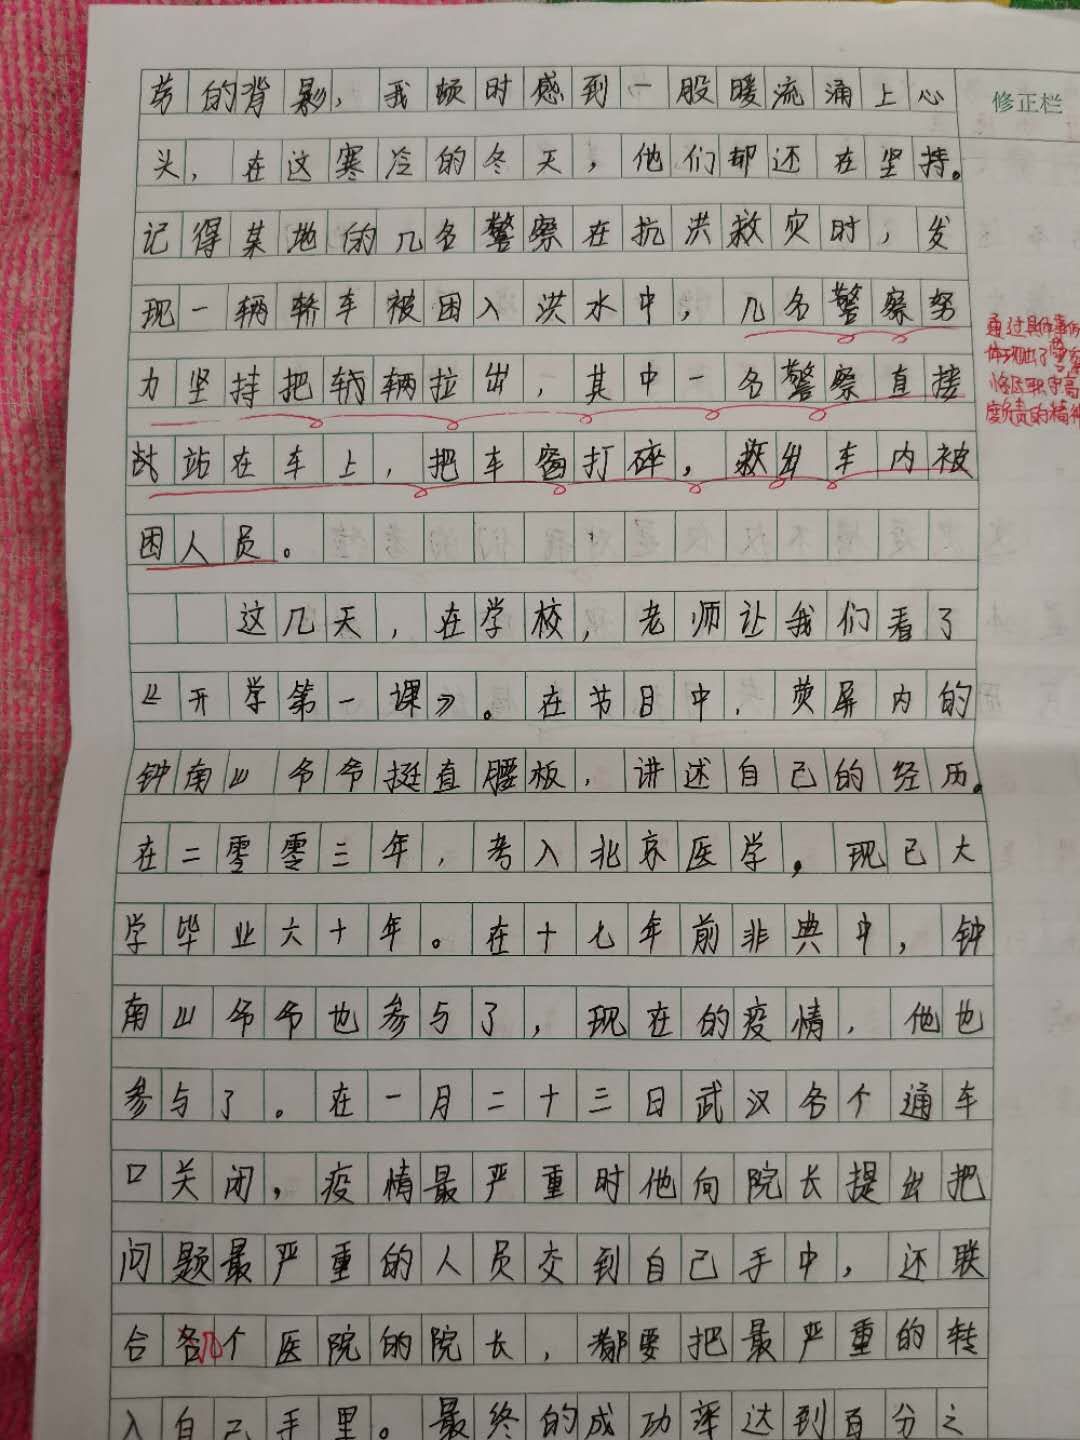 劳的背影，我顿时感到一股暖流涌上心
头，在这寒冷的冬天，他们却还在坚持。
记得某地的几名警察在抗洪救灾时，发
现一辆轿车被困入洪水中，几名警察努
力坚持把轿辆拉出，其中一名警察直接
站在车上，把车窗打碎，救出车内被
困人员。
这几天，在学校，老师让我们看了
《开学第一课》。在节目中，荧屏内的
钟南山爷爷挺直腰板，讲述自己的经历。
在二零零三年，考入北京医学，现已大
学毕业六十年。在十七年前非典中，钟
南山爷爷也参与了，现在的疫情，他也
参与了。在一月二十三日武汉各个通车
口关闭，疫情最严重时他向院长提出把
问题最严重的人员交到自己手中，还联
合各几个医院的院长，都要把最严重的转
入自己手里。最终的成功率达到百分之
修正栏
通过具体事例
体现出了警察
恪尽职守高
度负责的精神